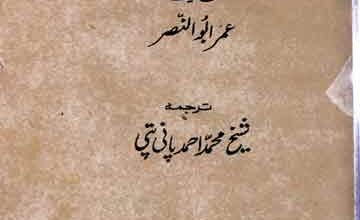 عمر ابو النصر
ترجمہ
شیخ محمد احمد پانی پتی